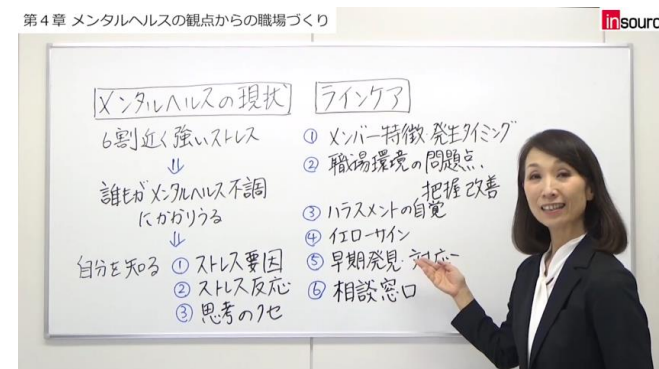 第４章 メンタルヘルスの観点からの職場づくり
insourc
メンタルヘルスの現状
6割近く強いストレス
⇓
誰もがメンタルヘルス不調
にかかりうる
⇓
自分を知る ① ストレス要因
② ストレス反応
③ 思考のクセ
ラインケア
① メンバー特徴・発生タイミング
② 職場環境の問題点、
把握改善
③ ハラスメントの自覚
④ イエローサイン
⑤ 早期発見・対応
⑥ 相談窓口